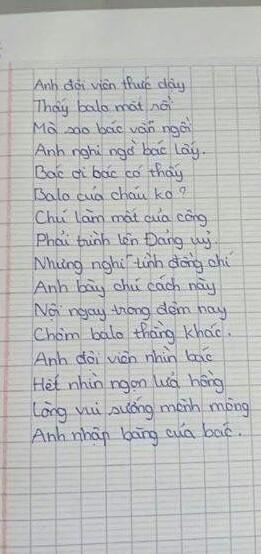 Anh đội viên thức dậy
Thấy balo mất rồi
Mà sao bác vẫn ngồi
Anh nghi ngờ bác lấy.
Bác ơi bác có thấy
Balo của cháu ko?
Chú làm mất của công
Phải trình lên Đảng uỷ.
Nhưng nghĩ tình đồng chí
Anh bày chú cách này
Nội ngay trong đêm nay
Chôm balo thằng khác.
Anh đội viên nhìn bác
Hết nhìn ngọn lửa hồng
Lòng vui sướng mênh mông
Anh nhập băng của bác.